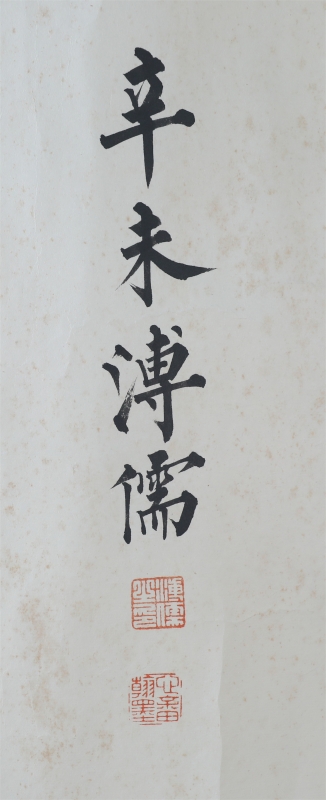 辛未溥儒
溥儒之印